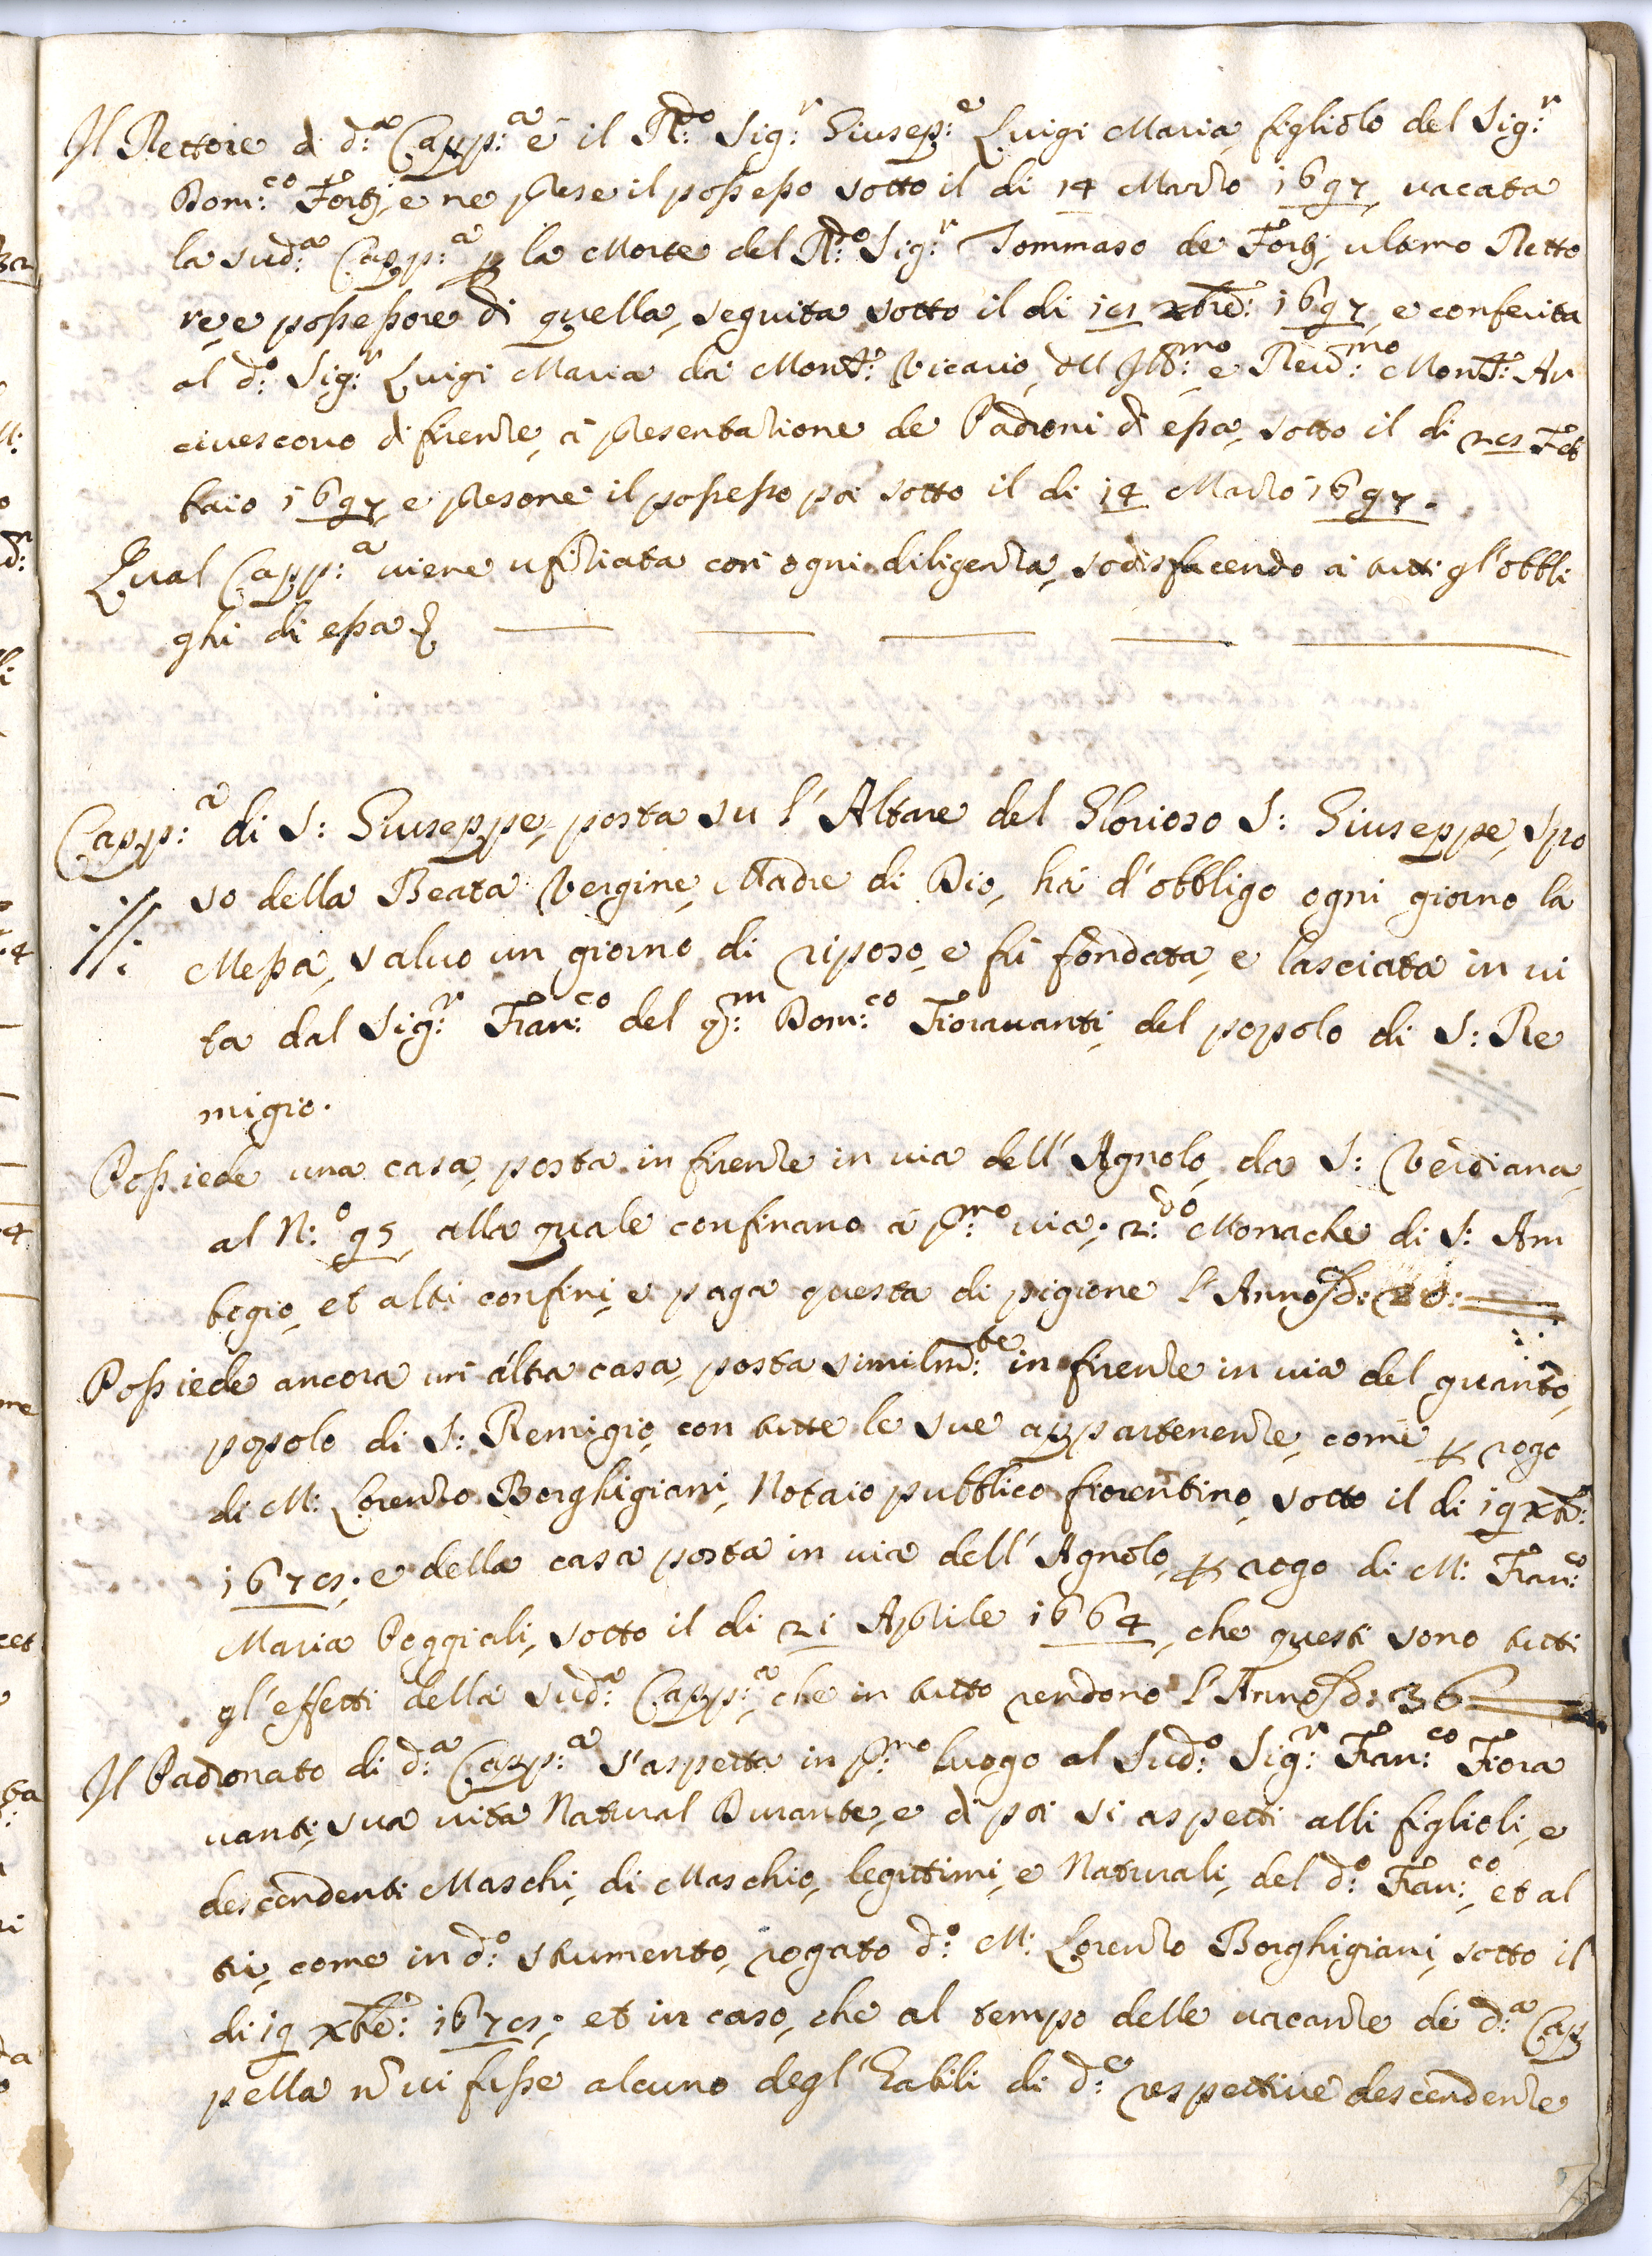 Il Rettore di d:ª Capp:ª è il R:do Sig:r Giusep:e Luigi Maria, figliolo del Sig:r
Dom:co Fortj, e ne prese il possesso sotto il di 14 Marzo 1697, vacata
la sud:ª Capp:ª p la Morte del R:do Sig:r Tommaso de Fortj, ultimo Retto
re, e possessore di quella, seguita sotto il di xbre: 1697, e conferita
al d:º Sig:r Luigi Maria da Mons:r Vicario, dell Ill:mo e Reud:mo Mons:r Ar
civescovo di firenze, à presentatione de Padroni di essa, sotto il di Feb
braio 1697, e presone il possesso poi sotto il di 14 Marzo 1697.
Qual Capp:ª viene ufiziata con ogni diligenza, sodisfacendo à tutti gl'obbli
ghi di essa
Capp:ª di S: Giuseppe, posta su l'Altare del Glorioso S: Giuseppe, Spo
so della Beata Vergine, Madre di Dio, hà d'obbligo ogni giorno la
Messa, salvo un giorno di riposo, e fù fondata, e lasciata in vi
ta dal Sig:r Fran:co del q:m Dom:co Fioravanti, del popolo di S: Re
migio.
Possiede una casa, posta in firenze in via dell'Agnolo, da S: Verdiana,
al N:º 95, alla quale confinano à p:mo via; 2:do Monache di S: Am
brogio, et altri confini, e paga questa di pigione l'Anno
Possiede ancora un'altra casa, posta similm:te in firenze in via del guanto,
popolo di S: Remigio, con tutte le sue appartenenze, come p rogo
di M: Lorenzo Borghigiani, Notaio pubblico fiorentino, sotto il di 19 xbr:
e della casa posta in via dell'Agnolo, p rogo di M: Fran:co
Maria Poggiali, sotto il di 21 Aprile 1664, che questi sono tutti
gl'effetti della sud:ª Capp:ª, che in tutto rendono l'Anno d: 36
Il Padronato di d:ª Capp:ª s'aspetta in p:mo luogo al Sud:º Sig:r Fran:co Fiora
vanti, sua vita Natural Durante, e di poi si aspetti alli figlioli, e
descendenti Maschi, di Maschio, legittimi, e Naturali, del d:º Fran:co, et al
tri, come in d:º strumento, rogato d:º M: Lorenzo Borghigiani, sotto il
di 19 xbre: et in caso, che al tempo delle vacanze di d:ª Cap
pella nō vi fusse alcuno degl'Eabili di d:e respettive descendenze